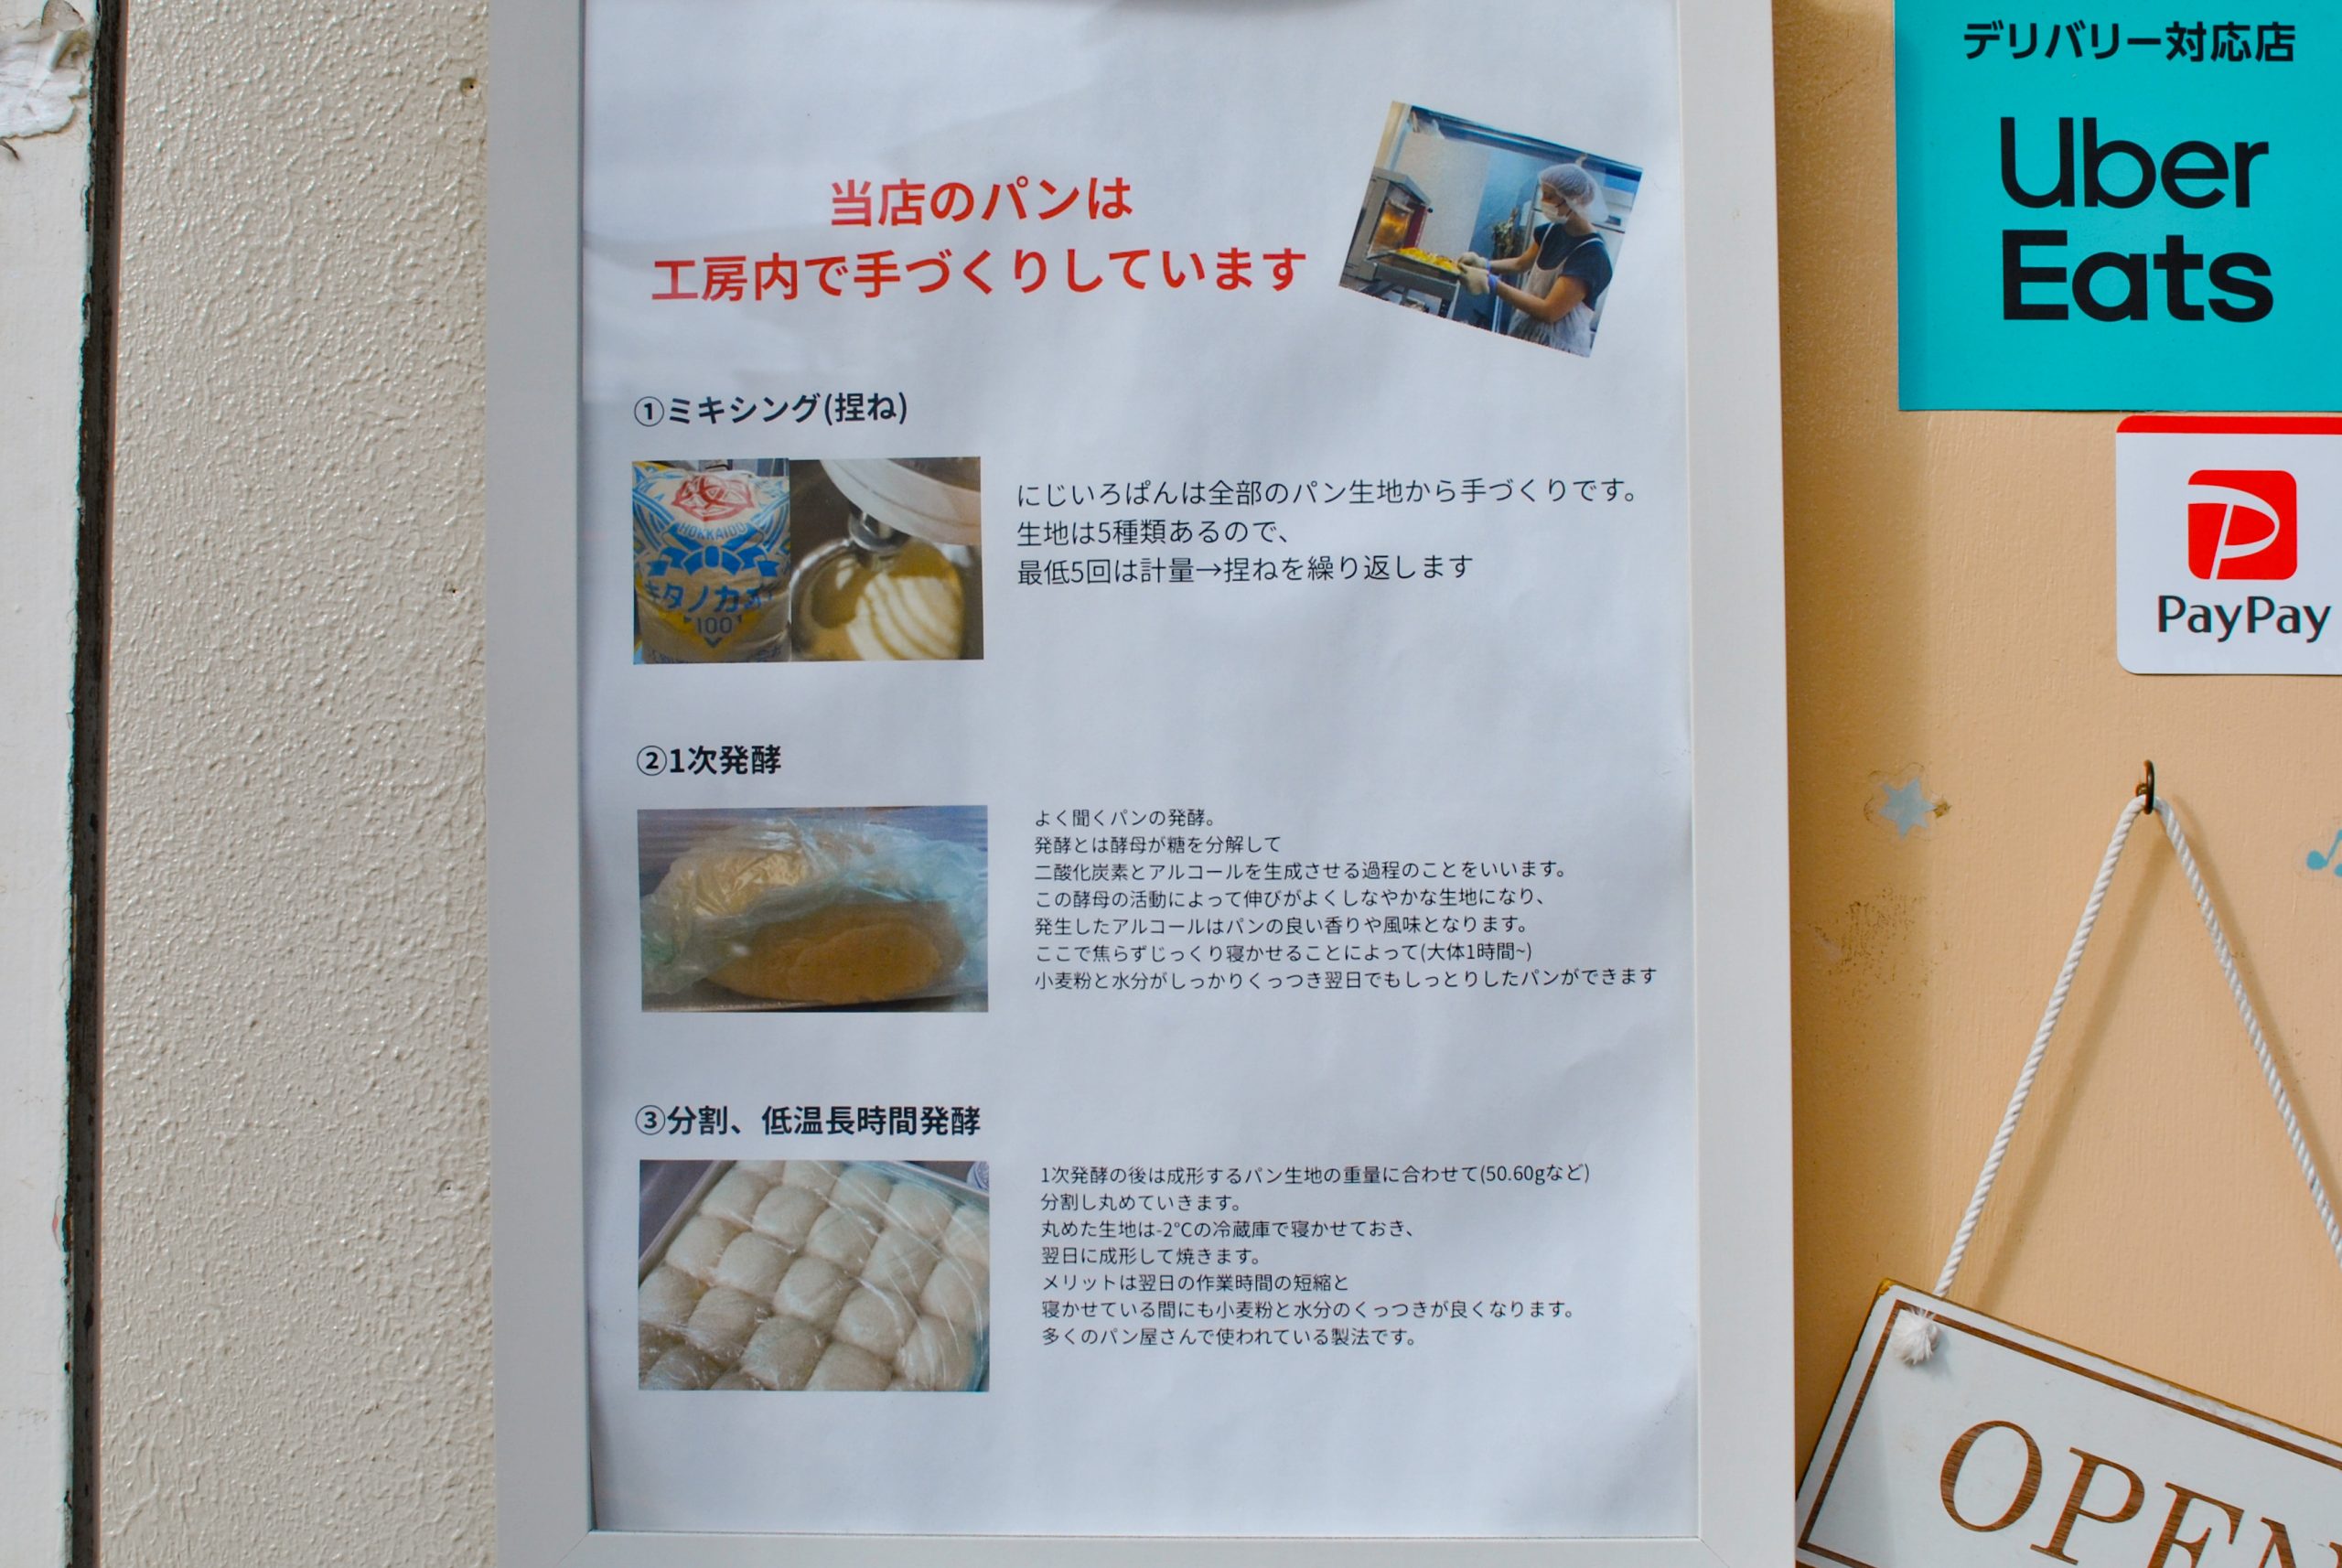 当店のパンは
工房内で手づくりしています
①ミキシング(捏ね)
HOKKAIDO
キタノカオ
100
にじいろぱんは全部のパン生地から手づくりです。
生地は5種類あるので、
最低5回は計量→捏ねを繰り返します
②1次発酵
よく聞くパンの発酵。
発酵とは酵母が糖を分解して
二酸化炭素とアルコールを生成させる過程のことをいいます。
この酵母の活動によって伸びがよくしなやかな生地になり、
発生したアルコールはパンの良い香りや風味となります。
ここで焦らずじっくり寝かせることによって(大体1時間~)
小麦粉と水分がしっかりくっつき翌日でもしっとりしたパンができます
③分割、低温長時間発酵
1次発酵の後は成形するパン生地の重量に合わせて(50.60gなど)
分割し丸めていきます。
丸めた生地は-2℃の冷蔵庫で寝かせておき、
翌日に成形して焼きます。
メリットは翌日の作業時間の短縮と
寝かせている間にも小麦粉と水分のくっつきが良くなります。
多くのパン屋さんで使われている製法です。
デリバリー対応店
Uber
Eats
PayPay
OPEN